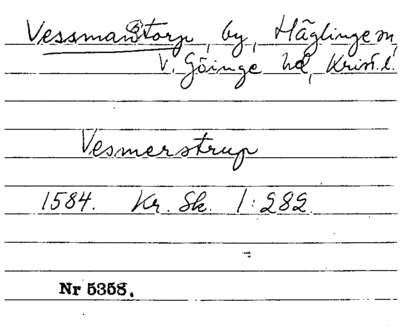 Vessmanstorp, by, Häglinge sn,
V. Göinge hd, Krist. l.
Vesmerstrup
1584. Kr. Sk. 1:282.
Nr 5358.